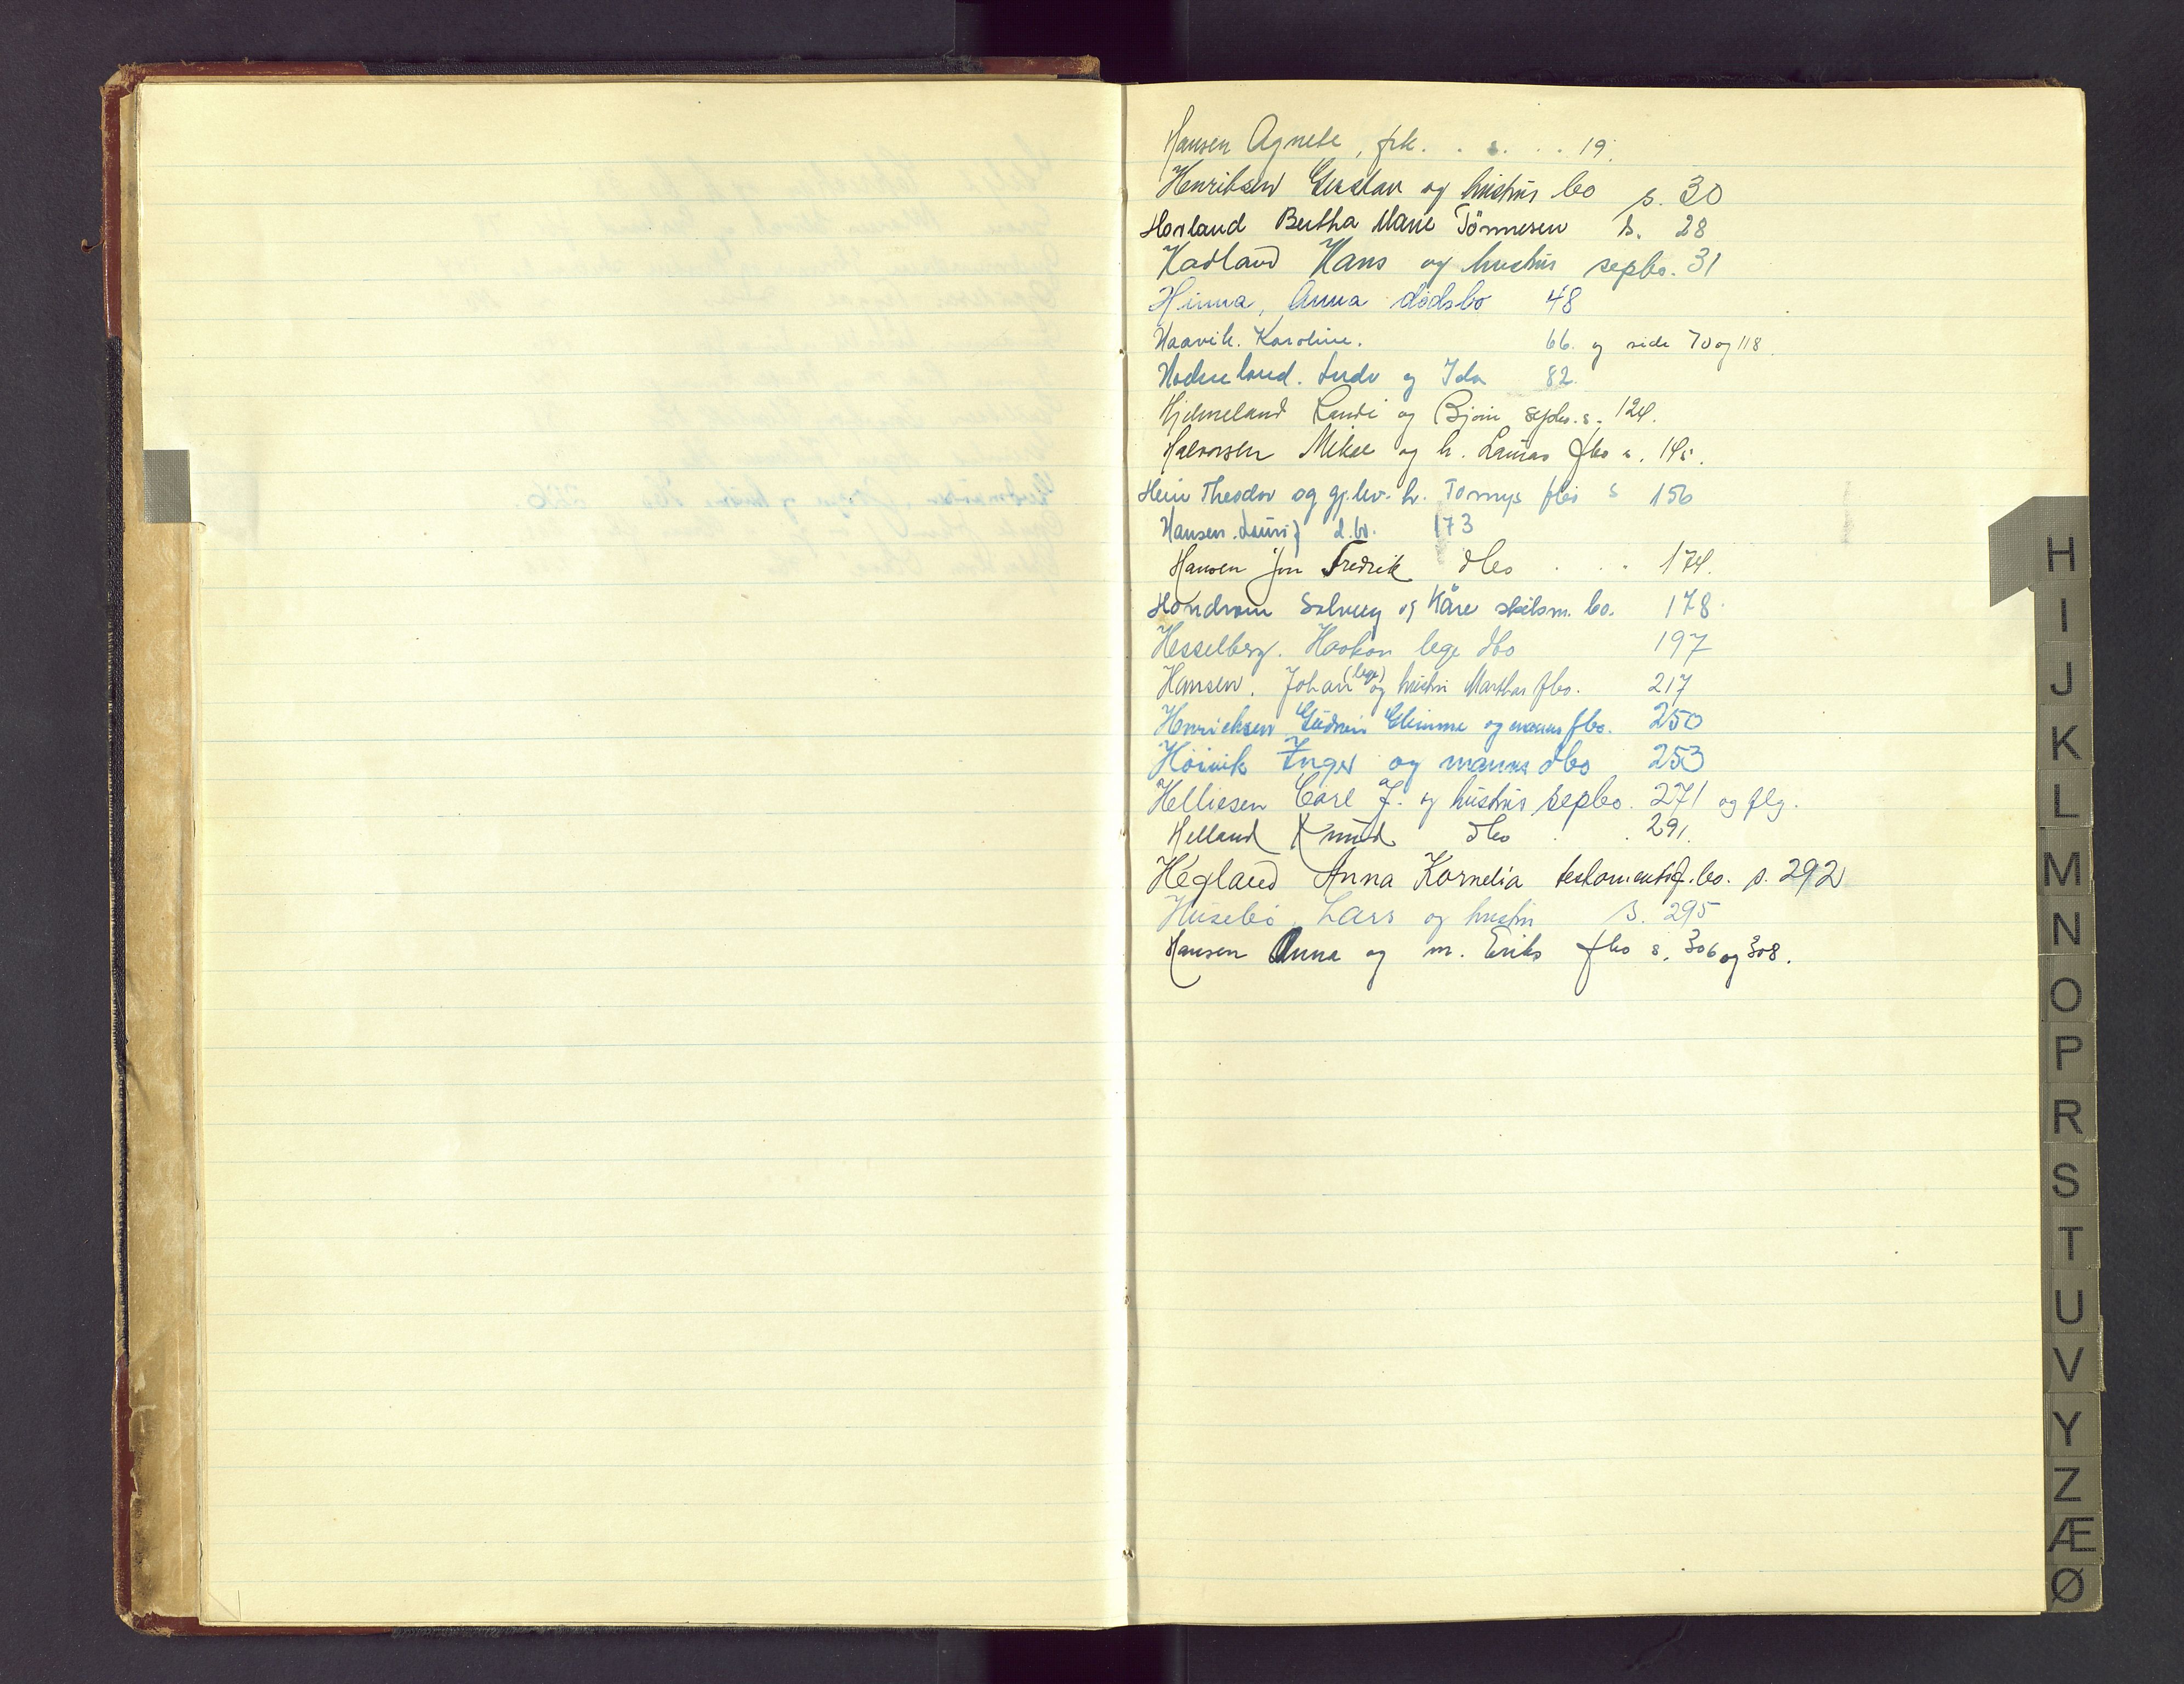 Hansen Agnete, frk. . s. . . 19.
Henriksen Gustav og hustrus bo s. 30
Horland Bertha Marie Tönnesen s. 28
Hadland Hans og hustrus sepbo. 31
Hinna, Anna dödsbo 48
Haavik. Karoline. 66. og side 70 og 118.
og Ida 82.
Hjelmeland Randi og Bjørn sepbo. s. 124.
Halvorsen Mikal og h. fbo s. 145.
Hein Theodor og gj.lev. h. Tomys fbo s 156
Hansen. Lauritz d.bo. 173
Hansen Jon Fredrik dbo . . . 174.
Solveig og Kåre skilsm. bo. 178.
Hesselberg. Haakon lege dbo 197
Hansen. Johan (lege) og hustru Marthas fbo. 217
Henrichsen Gudrun og manns fbo. 250
Inger og manns dbo 253
Helliesen Carl J. og hustrus sepbo. 271 og flg.
Helland Knud dbo . . 291.
Hegland Anna Kornelia testamentsf. bo. s. 292
Husebö, Lars og hustru s. 295
Hansen Anna og m. Eriks fbo s. 306 og 308.
H
I
J
K
L
M
N
O
P
R
S
T
U
V
Y
Z
Æ
Ø